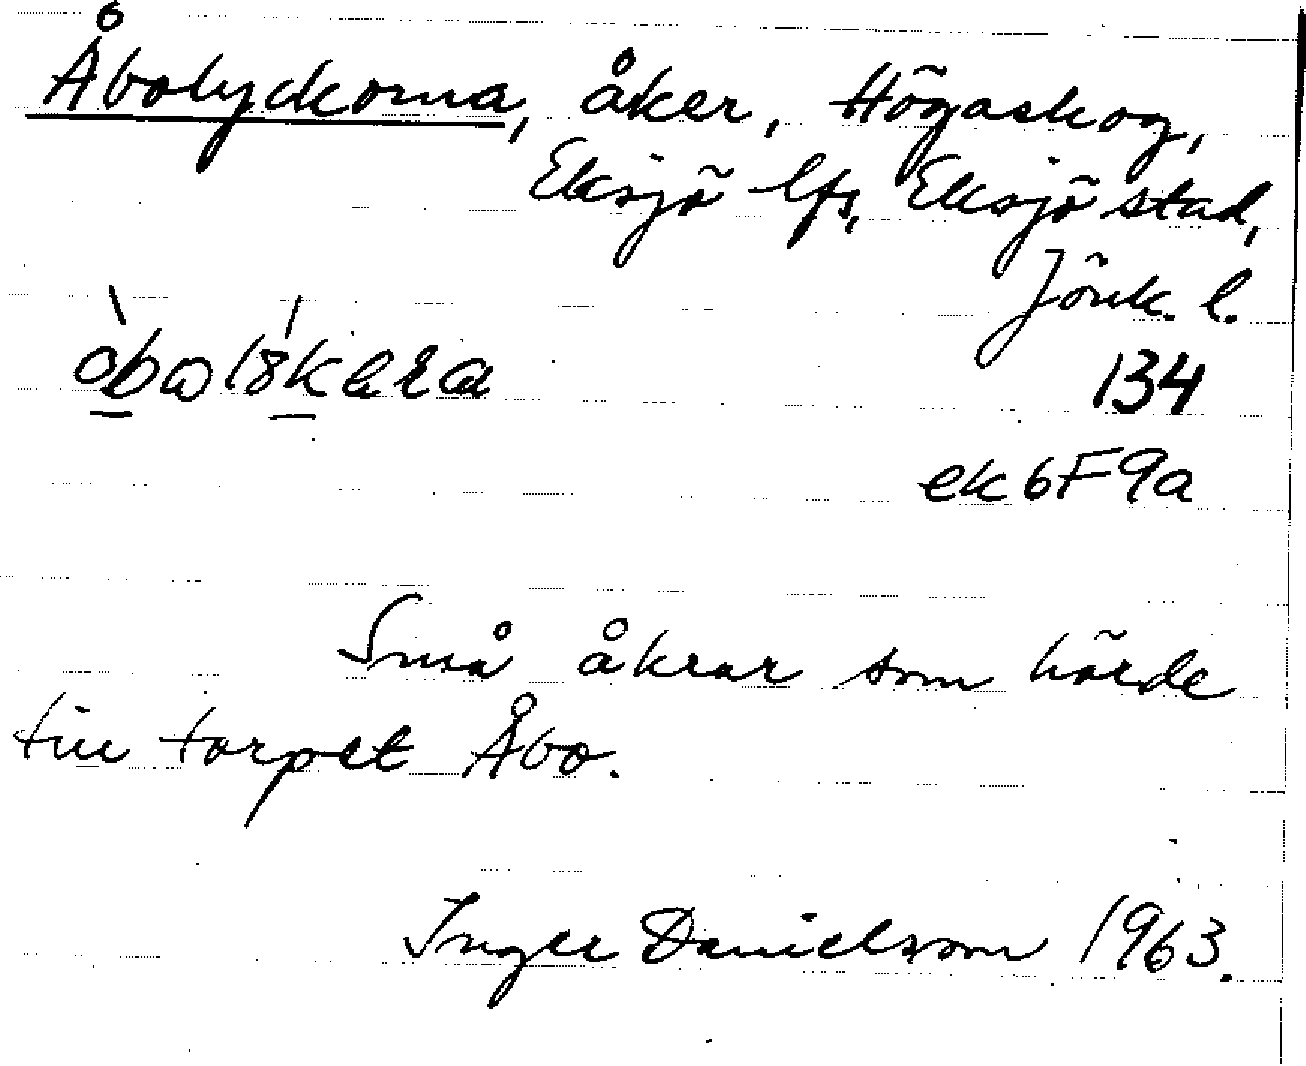 Åbolyckorna, åker, Högaskog,
Eksjö lfs, Eksjö stad,
Jönk. l.
134
ek6F9a
Små åkrar som hörde
till torpet Åbo.
Inger Danielsson 1963.